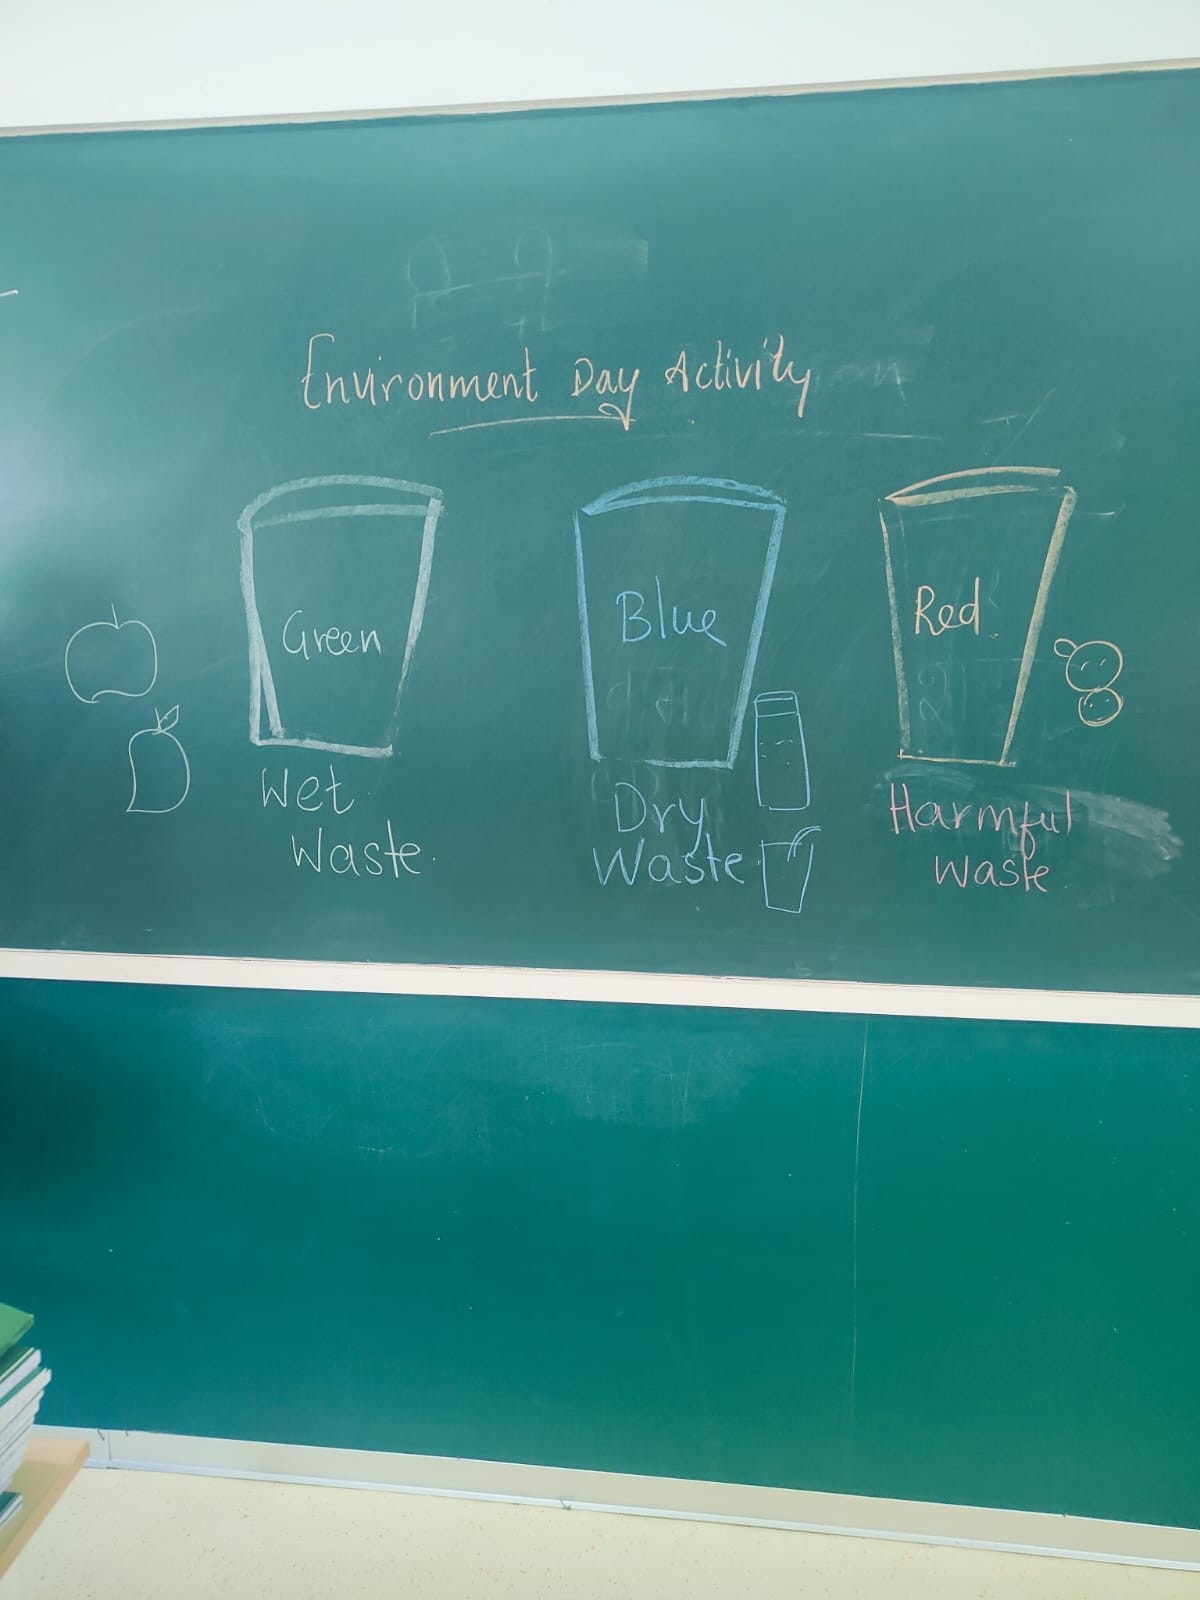 Environment Day Activity
Green
Blue
Red
Wet
Waste.
Dry
Waste
Harmful
Waste